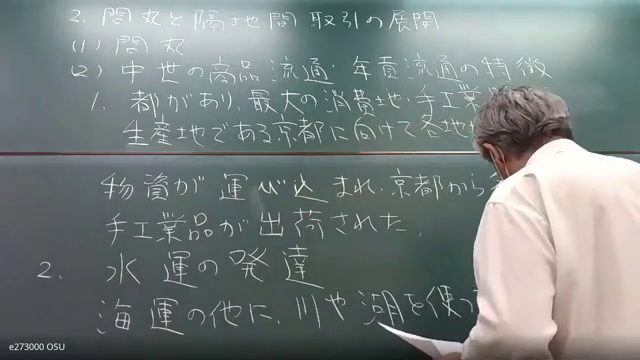 2. 問丸と隔地間取引の展開
(1) 問丸
(2) 中世の商品流通・年貢流通の特徴
1. 都があり、最大の消費地・手工業
生産地である京都に向けて各地
物資が運び込まれ、京都から
手工業品が出荷された。
2. 水運の発達
海運の他に、川や湖を使っ
e273000 OSU